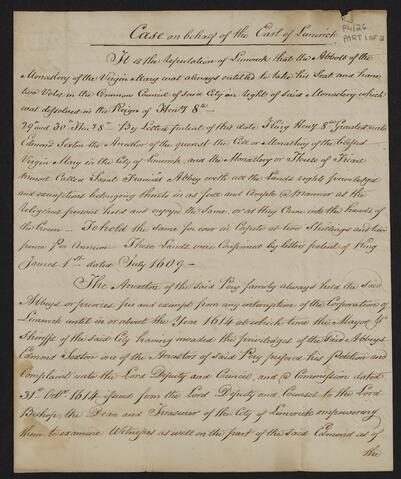 Case on behalf of the Earl of Limerick
P4/26
PART 1 OF 2
It is the Reputation of Limerick that the Abbott of the
Monastery of the Virgin Mary was always entitled to take his Seat and have
two Votes in the Common Council of said City in Right of said Monastery which
was dissolved in the Reign of Henʸ 8ᵗʰ —
29ᵗʰ and 30ᵗʰ Henʸ 8ᵗʰ — By Letters patent of this date King Henʸ 8ᵗʰ Granted unto
Edmond Sexton the Scite of the Cell or Monastery of the blessed
Virgin Mary in the City of Limerick, and the Monastery or House of Friars
Called Saint Francis Abbey with all the Lands rights priviledges
and exemptions belonging thereto in as full and Ample a Manner as the
Religious persons held and enjoyed the Same, or as they Came into the hands of
the Crown — To hold the Same for ever in Capite at two Shillings and two
pence per Annum — These Lands were Confirmed by letters patent of King
James 1ˢᵗ dated July 1609 —
The Ancestors of the said Pery family always held the said
Abbeys or priories free and exempt from any interruption of the Corporation of
Limerick until in or about the Year 1614 at which time the Mayor &
Sheriffs of the said City having invaded the priviledges of the Said Abbeys
Edmond Sexton one of the Ancestors of said Pery prefered his petition and
Complaint unto the Lord Deputy and Council, and a Commission dated
31ˢᵗ Octʳ 1614 issued from the Lord Deputy and Council to the Lord
Bishop, the Dean and Treasurer of the City of Limerick empowering
them to examine Witnesses as well on the part of the said Edmond as of
the